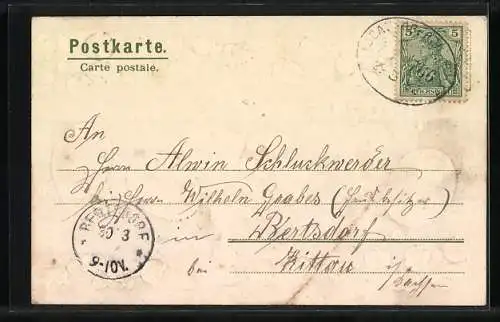 Postkarte.
Carte postale.
5 5
An
Herrn Alwin Schluckwerder
bei Herrn Wilhelm Grabes
in Bertsdorf
bei Zittau i/Sachsen
BERTSDORF